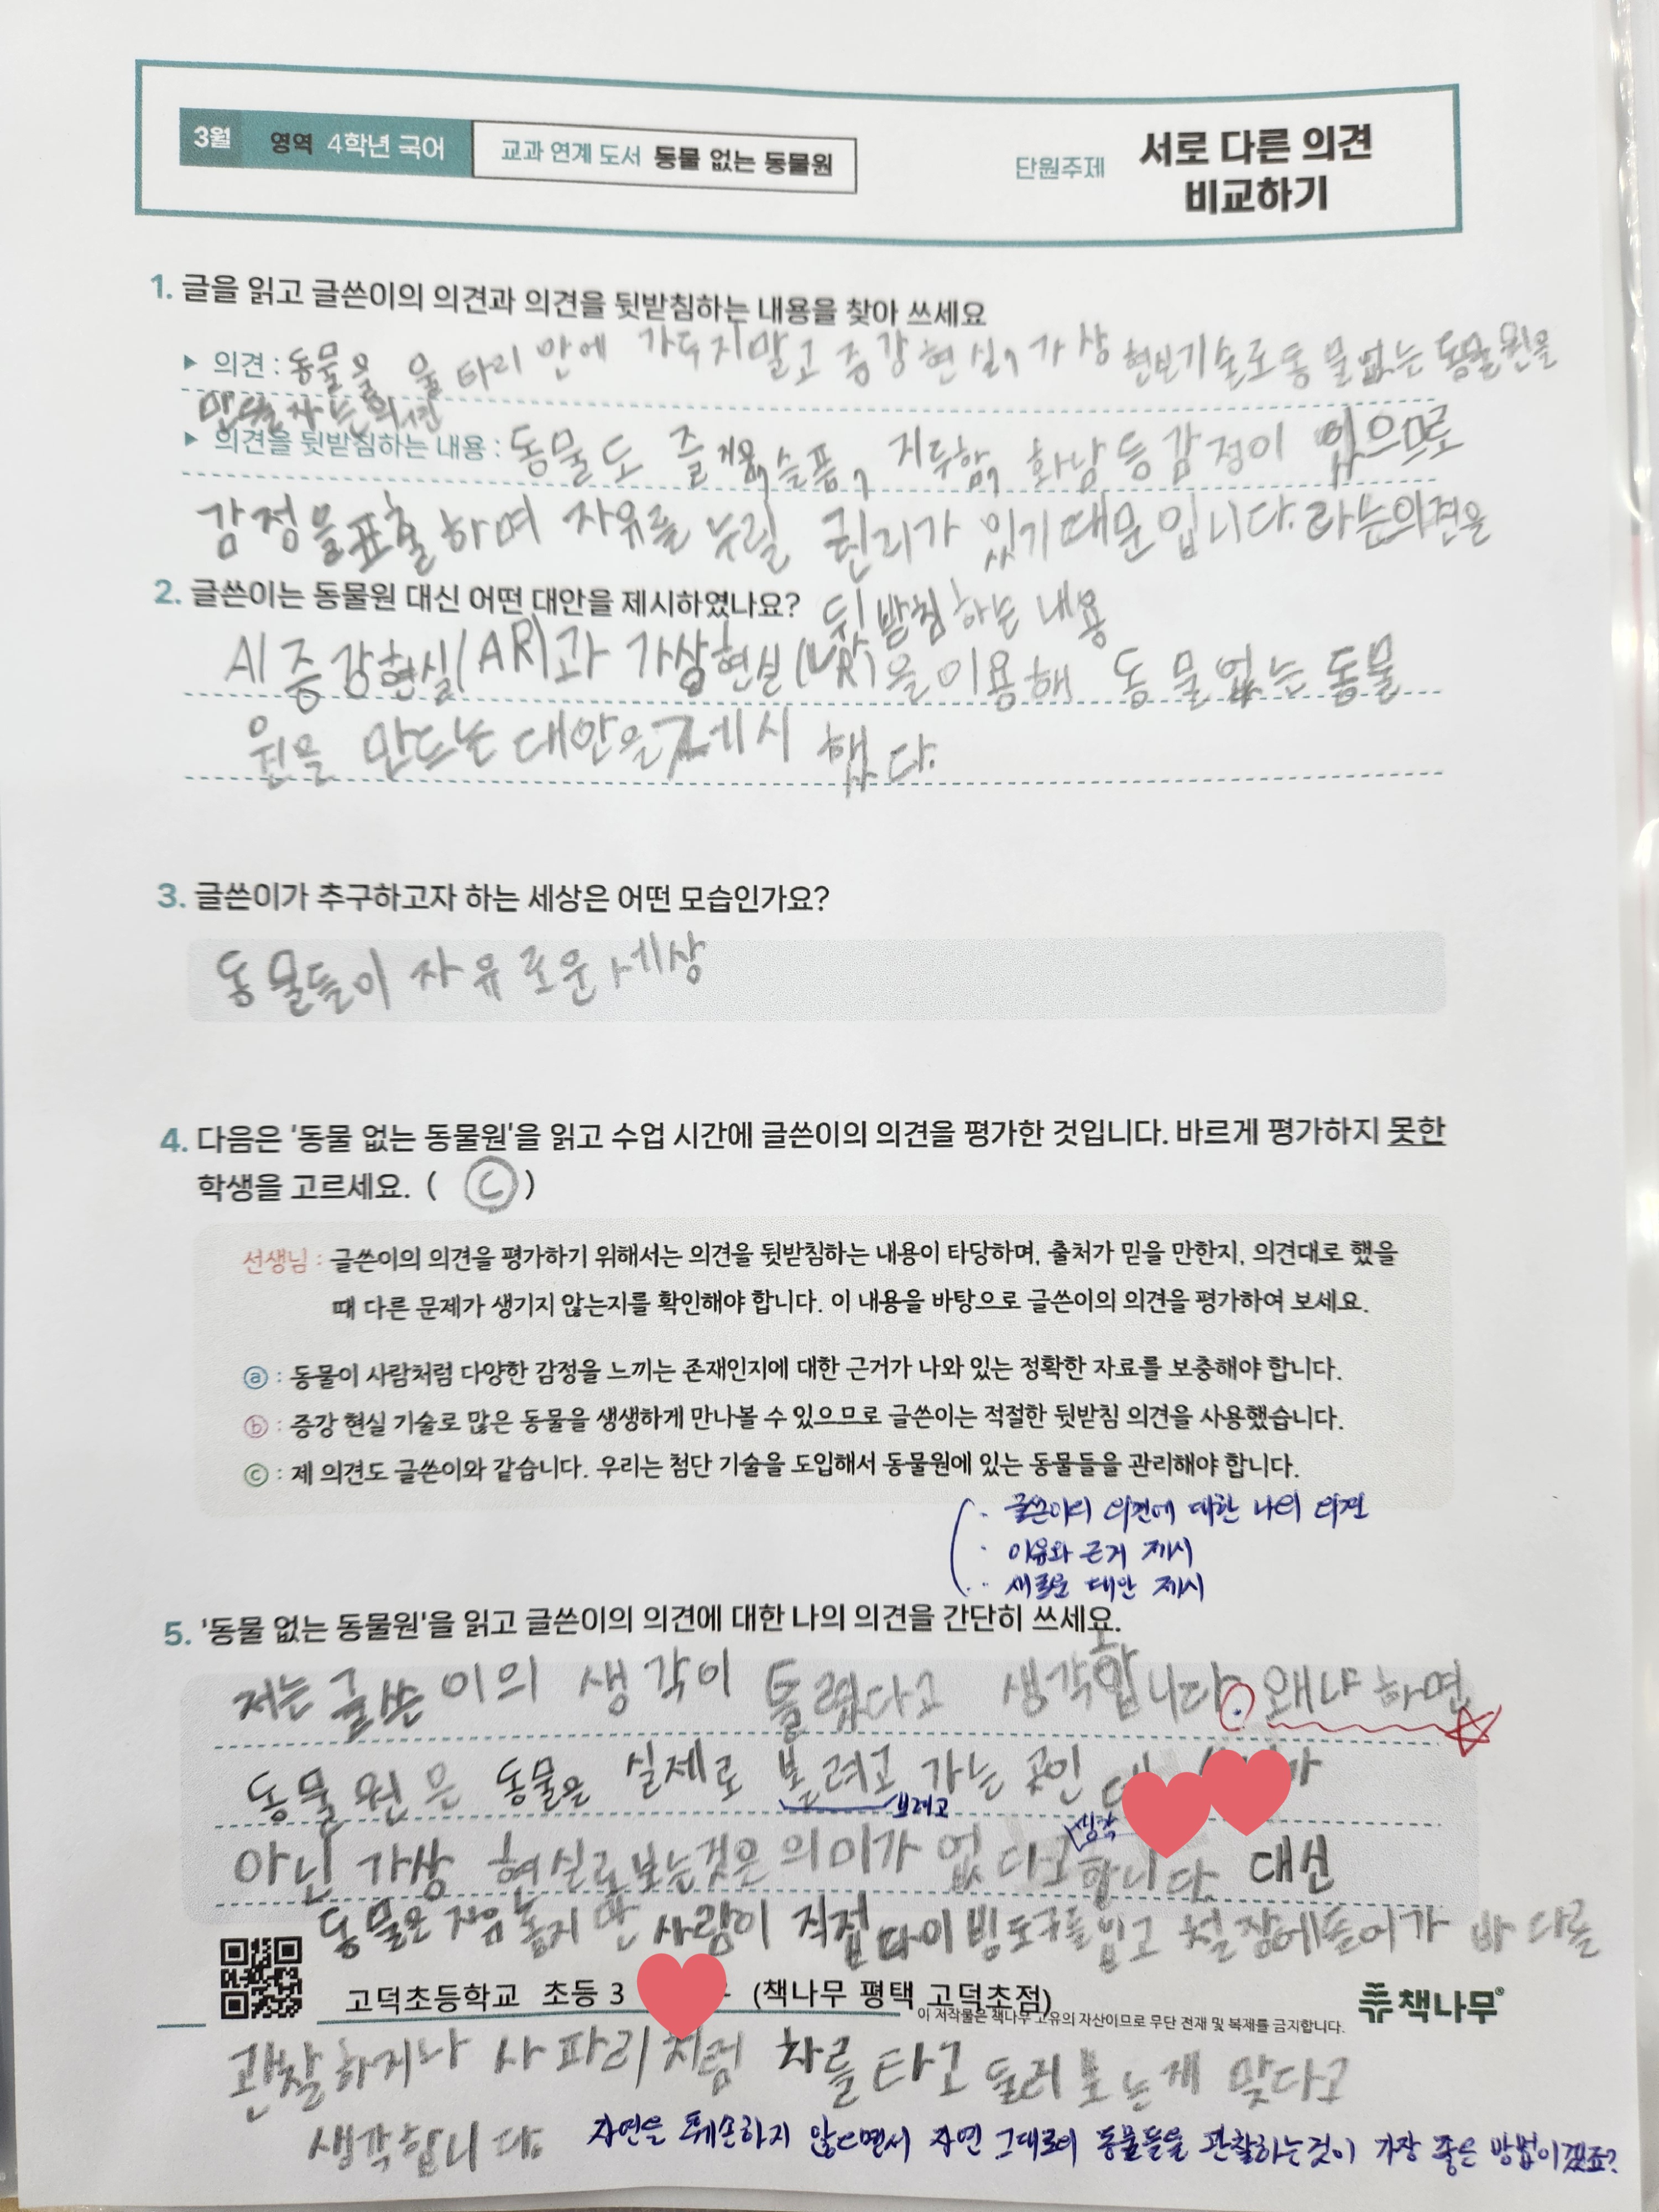 3월 영역 4학년 국어 교과 연계 도서 동물 없는 동물원 단원주제 서로 다른 의견
비교하기
1. 글을 읽고 글쓴이의 의견과 의견을 뒷받침하는 내용을 찾아 쓰세요
▶ 의견 : 동물을 울타리 안에 가두지말고 증강현실, 가상 현실기술로 동물없는 동물원을
만들자는의견
▶ 의견을 뒷받침하는 내용 : 동물도 즐거움, 슬픔, 지루함, 화남등 감정이 있으므로
감정을표출하며 자유를 누릴 권리가 있기때문입니다. 라는의견을
뒷받침하는 내용
2. 글쓴이는 동물원 대신 어떤 대안을 제시하였나요?
AI증강현실(AR)과 가상현실(VR)을이용해 동물없는 동물
원을 만드는 대안을제시 했다.
3. 글쓴이가 추구하고자 하는 세상은 어떤 모습인가요?
동물들이 자유로운세상
4. 다음은 '동물 없는 동물원'을 읽고 수업 시간에 글쓴이의 의견을 평가한 것입니다. 바르게 평가하지 못한
학생을 고르세요. ( ⓒ )
선생님 : 글쓴이의 의견을 평가하기 위해서는 의견을 뒷받침하는 내용이 타당하며, 출처가 믿을 만한지, 의견대로 했을
때 다른 문제가 생기지 않는지를 확인해야 합니다. 이 내용을 바탕으로 글쓴이의 의견을 평가하여 보세요.
ⓐ : 동물이 사람처럼 다양한 감정을 느끼는 존재인지에 대한 근거가 나와 있는 정확한 자료를 보충해야 합니다.
ⓑ : 증강 현실 기술로 많은 동물을 생생하게 만나볼 수 있으므로 글쓴이는 적절한 뒷받침 의견을 사용했습니다.
ⓒ : 제 의견도 글쓴이와 같습니다. 우리는 첨단 기술을 도입해서 동물원에 있는 동물들을 관리해야 합니다.
· 글쓴이의 의견에 대한 나의 의견
· 이유와 근거 제시
· 새로운 대안 제시
5. '동물 없는 동물원'을 읽고 글쓴이의 의견에 대한 나의 의견을 간단히 쓰세요.
저는 글쓴이의 생각이 틀렸다고 생각합니다. 왜냐하면,
동물원은 동물을 실제로 볼려고 가는 곳인데
보려고
생각
아닌 가상 현실로보는것은 의미가 없다고합니다. 대신
동물은 자유롭지만 사람이 직접 다이빙도구를입고 철장에들어가 바다를
고덕초등학교 초등 3 (책나무 평택 고덕초점)
책나무
이 저작물은 책나무 고유의 자산이므로 무단 전재 및 복제를 금지합니다.
관찰하거나 사파리처럼 차를 타고 둘러보는게 맞다고
생각합니다.
자연을 훼손하지 않으면서 자연 그대로의 동물들을 관찰하는것이 가장 좋은 방법이겠죠?